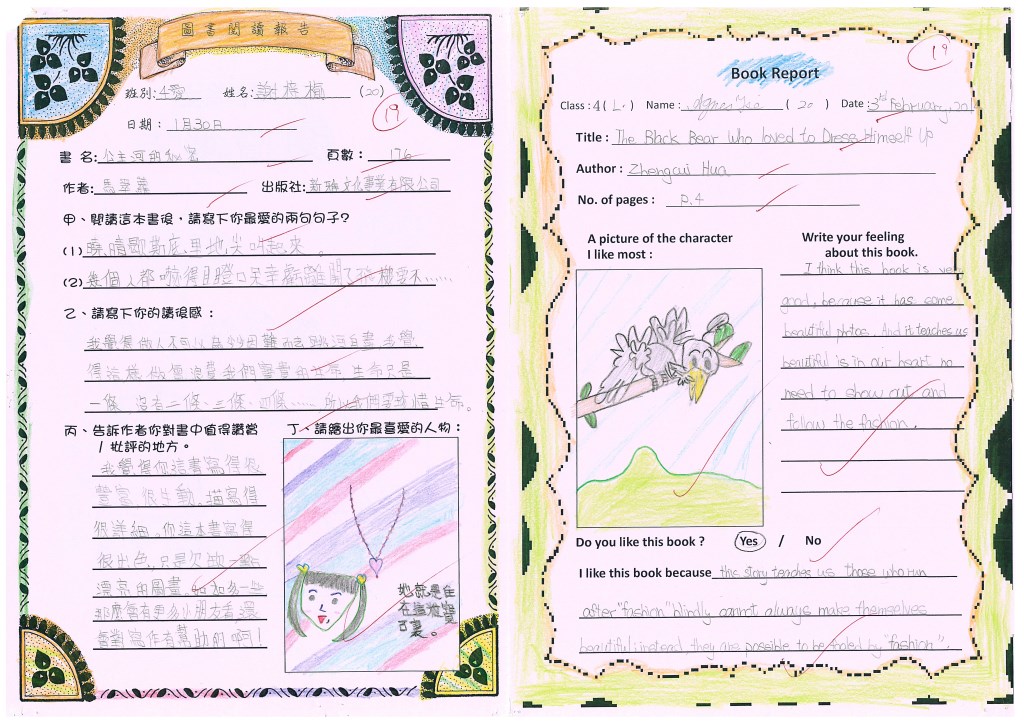 圖書閱讀報告
班別:4愛 姓名: 謝 梅 (20)
19
日期: 1月30日
書 名: 公主河的秘密 頁數: 176
作者: 馬翠蘿 出版社: 新雅文化事業有限公司
甲、閱讀這本書後,請寫下你最愛的兩句句子?
(1) 曉晴歇斯底里地尖叫起來。
(2) 幾個人都嚇得目瞪口呆幸虧離開了 要不……
乙、請寫下你的讀後感:
我覺得做人不可以為 困難而去跳河自 我覺
得這樣做便浪費我們寶貴的生命,生命只是
一條,沒有二條、三條、四條……所以我們要珍惜生命。
丙、告訴作者你對書中值得讚賞
/ 批評的地方。
我覺得你這書寫得很
豐富,很生動,描寫得
很詳細。你這本書寫得
很出色,只是欠缺一點
漂亮的圖畫,如加多一些
那麼會有更多小朋友看還
會對寫作有幫助的啊!
丁、請繪出你最喜愛的人物:
她就是住
在這城寶
裏。
Book Report
19
Class : 4 ( L. ) Name : Agnes Tse ( 20 ) Date : 3rd February,
Title : The Black Bear Who loved to Dress Himself Up
Author : Zhengcui Hua
No. of pages : P.4
A picture of the character
I like most :
Write your feeling
about this book.
I think this book is very
good, because it has some
beautiful photos. And it teaches us
beautiful is in our heart no
need to show out and
follow the fashion.
Do you like this book ? Yes / No
I like this book because this story teaches us those who run
after "fashion" blindly cannot always make themselves
beautiful; instead, they are possible to be fooled by "fashion".